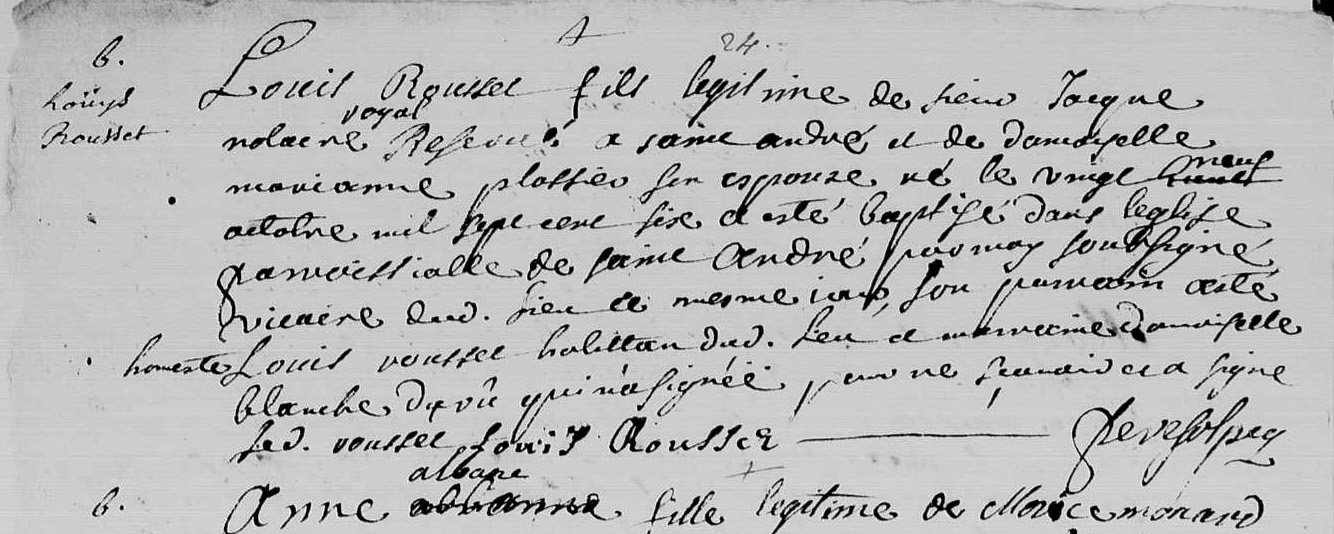 24.
b.
Louis Rousset fils legitime de sieur Jacque
Loüys
Rousset
royal
notaire Reservé a saint andré et de damoyselle
marianne plossier son espouze né le vingt neuf
octobre mil sept cent six a esté baptisé dans leglise
parroissialle de saint André par moy soubsigné
vicaire dud. lieu le mesme jour son parrain a esté
honeste Louis rousset habittan dud. lieu et marraine damoiselle
blanche qui n'a signée pour ne scavoir et a signe
led. rousset Louis Rousset
albane
b.
Anne fille legitime de Morice monard